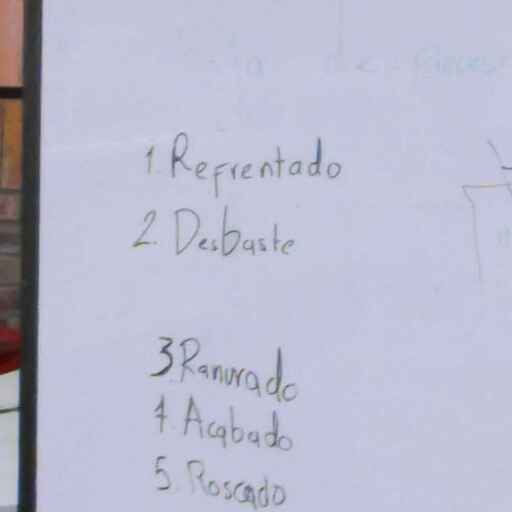 de Proceso
1. Refrentado
2. Desbaste
3. Ranurado
4. Acabado
5. Roscado